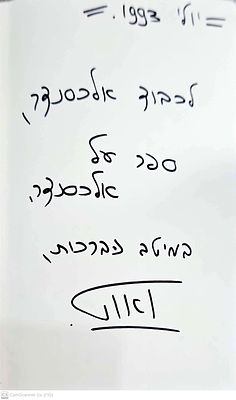 = יולי 1993. =
לכבוד אלכסנדר,
ספר על
אלכסנדר,
במיטב הברכות,
CamScanner